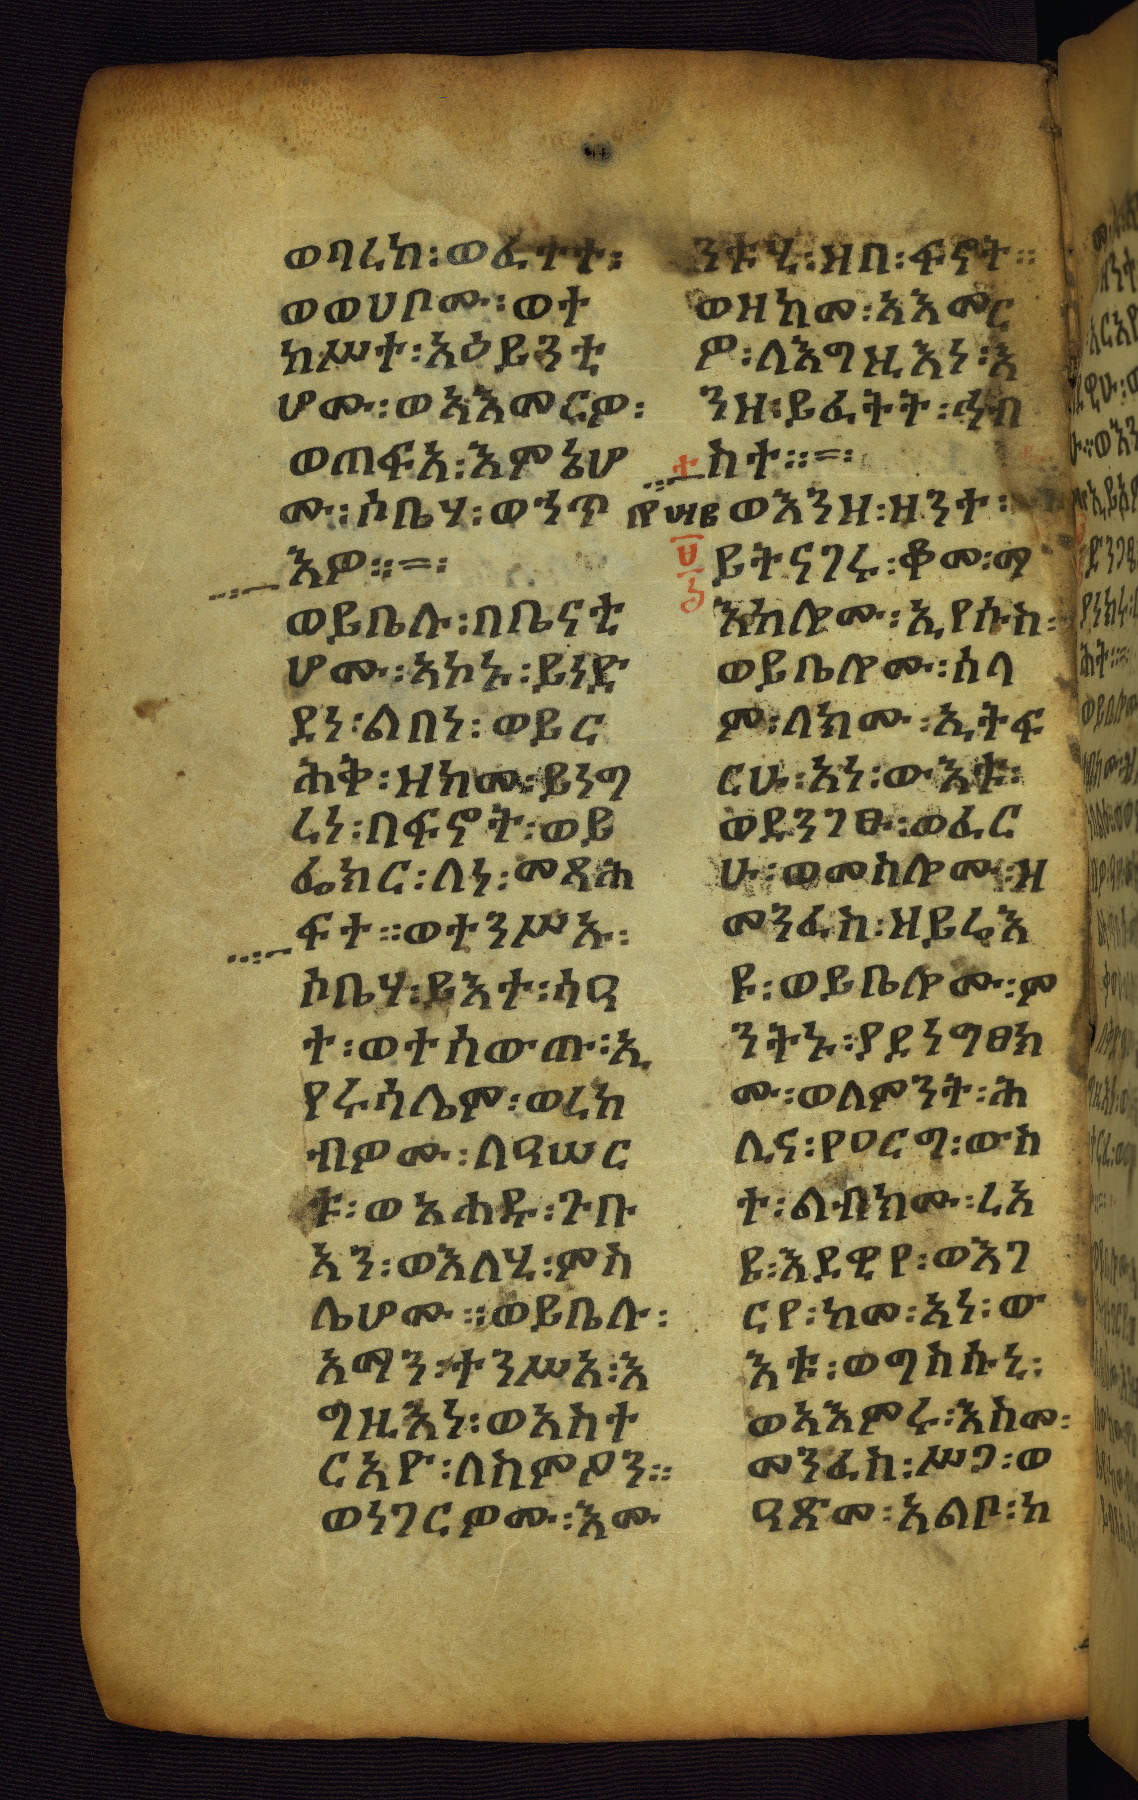 ወባረከ፡ወፈተተ፡
ወወሀቦሙ፡ወተ
ከሥተ፡አዕይንቲ
ሆሙ፡ወአእመርዎ፡
ወጠፍአ፡እምኔሆ
ሙ፡ሶቤሃ፡ወኀጥ
እዎ።=፡
ወይቤሉ፡በቤናቲ
ሆሙ፡አኮኑ፡ይነድ
ደነ፡ልበነ፡ወይር
ሕቅ፡ዘከመ፡ይነግ
ረነ፡በፍኖት፡ወይ
ፌክር፡ለነ፡መጻሕ
ፍተ።ወተንሥኡ፡
ሶቤሃ፡ይእተ፡ሳዓ
ተ፡ወተሰውጡ፡ኢ
የሩሳሌም፡ወረከ
ብዎሙ፡ለዓሠር
ቱ፡ወአሐዱ፡ጉቡ
አን፡ወእለሂ፡ምስ
ሌሆሙ።ወይቤሉ፡
አማን፡ተንሥአ፡እ
ግዚእነ፡ወአስተ
ርአዮ፡ለስምዖን።
ወነገርዎሙ፡እሙ
ንቱሂ፡ዘበ፡ፍኖት።
ወዘከመ፡አእመር
ዎ፡ለእግዚእነ፡እ
ንዘ፡ይፈትት፡ኅብ
ስተ።=፡
ወእንዘ፡ዘንተ፡
ይትናገሩ፡ቆመ፡ማ
እከሎሙ፡ኢየሱስ፡
ወይቤሎሙ፡ሰላ
ም፡ለክሙ፡ኢትፍ
ርሁ፡አነ፡ውእቱ፡
ወደንገፁ፡ወፈር
ሁ፡ወመስሎሙ፡ዘ
መንፈስ፡ዘይሬእ
ዩ፡ወይቤሎሙ፡ም
ንትኑ፡ያደነግፀክ
ሙ፡ወለምንት፡ሕ
ሊና፡የዐርግ፡ውስ
ተ፡ልብክሙ፡ረእ
ዩ፡እደዊየ፡ወእገ
ርየ፡ከመ፡አነ፡ው
እቱ፡ወግስሱኒ፡
ወአእምሩ፡እስመ፡
መንፈስ፡ሥጋ፡ወ
ዓጽመ፡አልቦ፡ከ